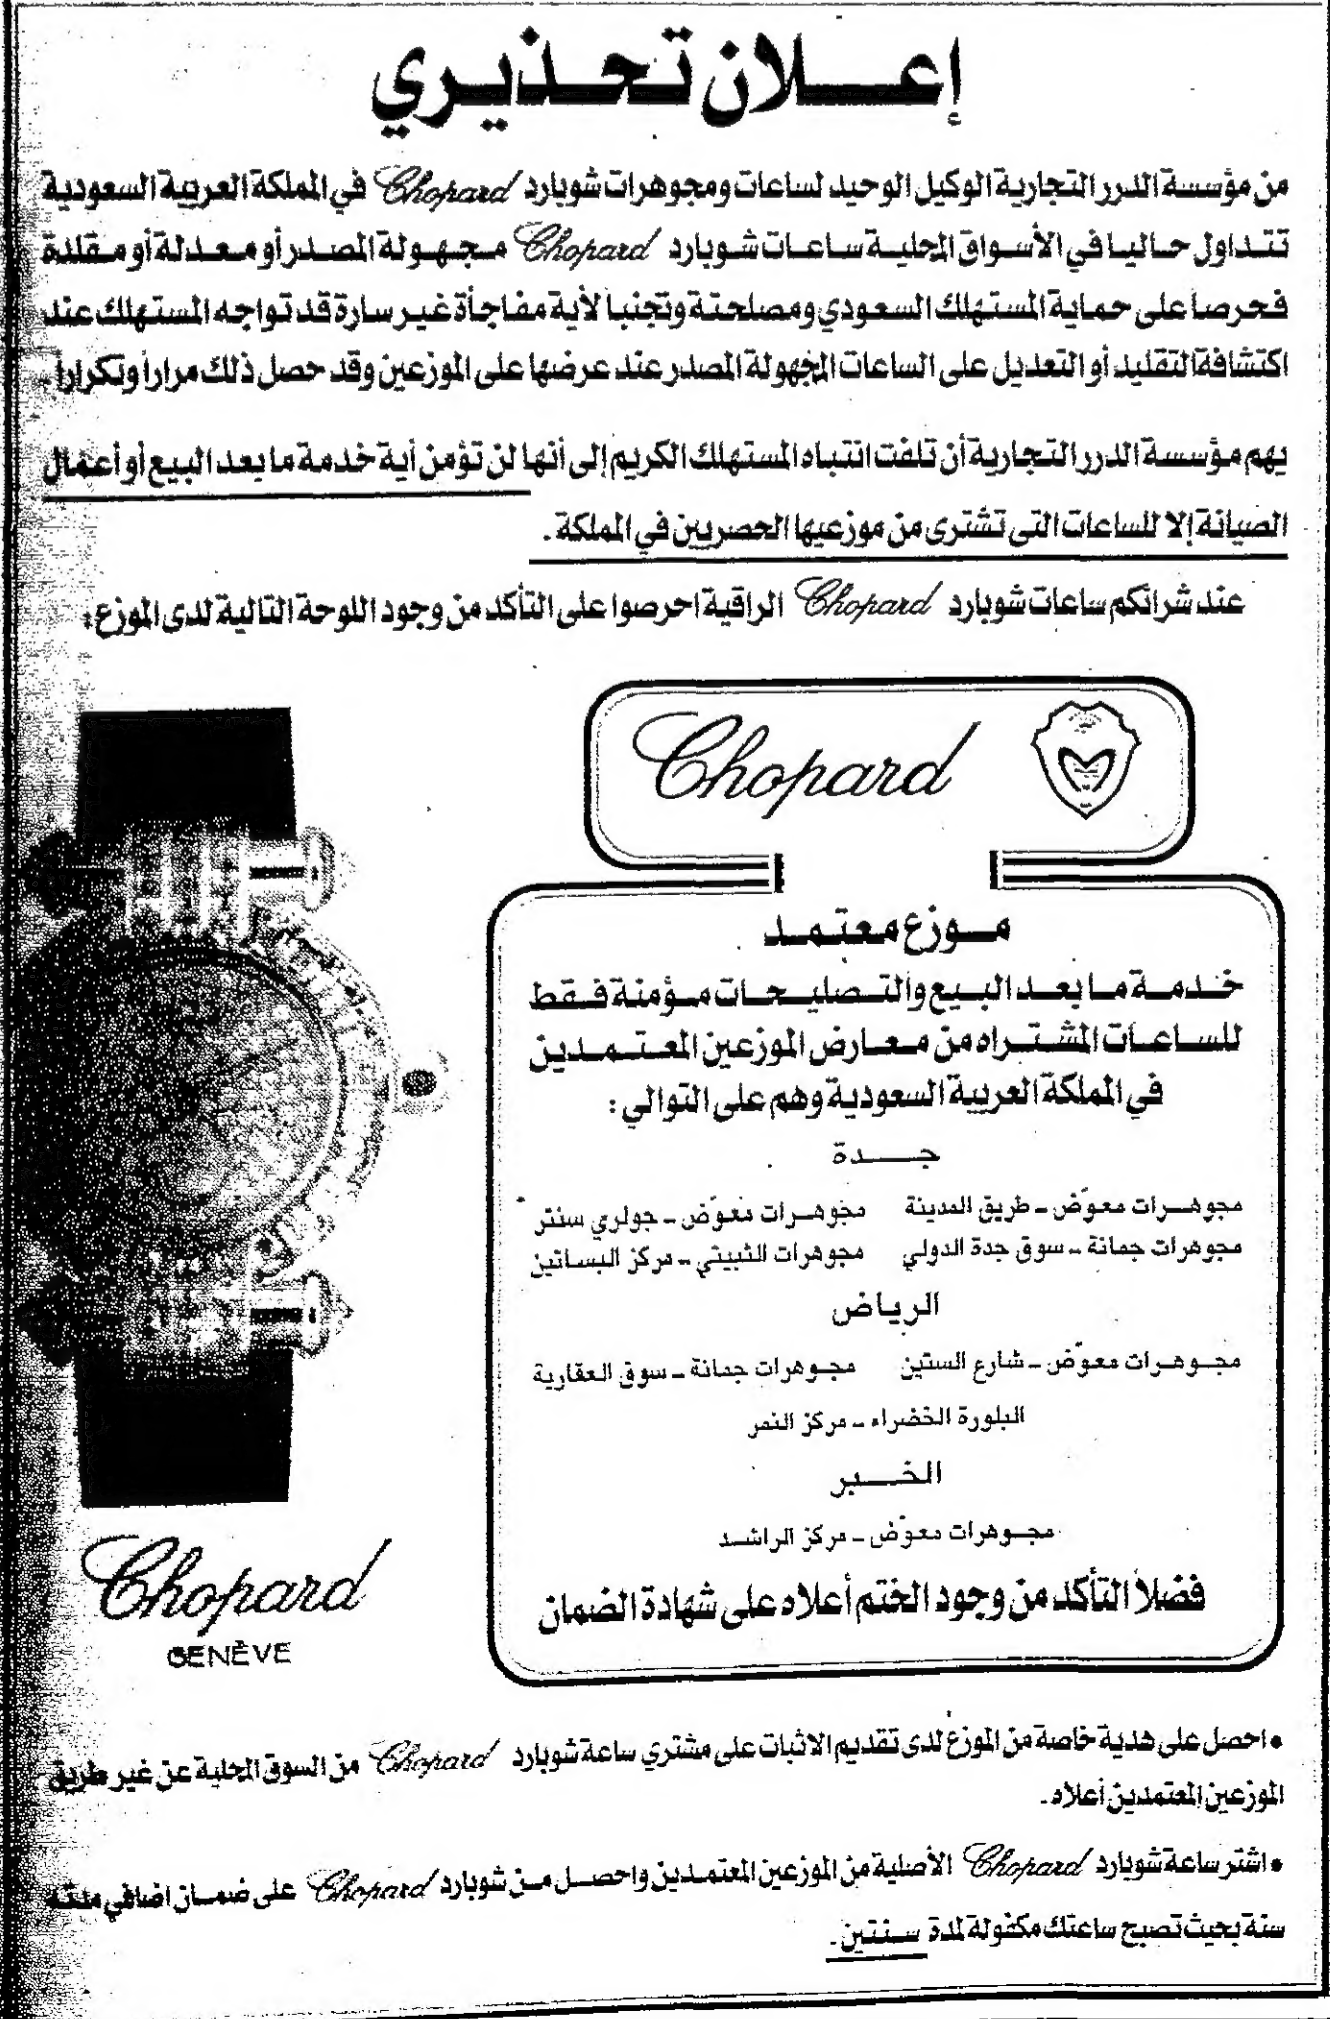 إعلان تحذيري
من مؤسسة الدرر التجارية الوكيل الوحيد لساعات ومجوهرات شوبارد Chopard في المملكة العربية السعودية
تتداول حاليا في الأسواق المحلية ساعات شوبارد Chopard مجهولة المصدر أو معدلة أو مقلدة
فحرصا على حماية المستهلك السعودي ومصلحتة وتجنبا لأية مفاجأة غير سارة قد تواجه المستهلك عند
اكتشافة التقليد أو التعديل على الساعات المجهولة المصدر عند عرضها على الموزعين وقد حصل ذلك مراراً وتكراراً.
يهم مؤسسة الدرر التجارية أن تلفت انتباه المستهلك الكريم إلى أنها لن تؤمن أية خدمة ما بعد البيع أو أعمال
الصيانة إلا للساعات التى تشترى من موزعيها الحصريين في المملكة.
عند شرائكم ساعات شوبارد Chopard الراقية احرصوا على التأكد من وجود اللوحة التالية لدى الموزع:
Chopard
موزع معتمد
خدمة ما بعد البيع والتصليحات مؤمنة فقط
للساعات المشتراه من معارض الموزعين المعتمدين
في المملكة العربية السعودية وهم على التوالي:
جدة
مجوهرات معوّض - طريق المدينة مجوهرات معوّض - جولري سنتر
مجوهرات جمانة - سوق جدة الدولي مجوهرات الثبيتي - مركز البساتين
الرياض
مجوهرات معوّض - شارع الستين مجوهرات جمانة - سوق العقارية
البلورة الخضراء - مركز النمر
الخبر
مجوهرات معوّض - مركز الراشد
فضلاً التأكد من وجود الختم أعلاه على شهادة الضمان
Chopard
GENÈVE
• احصل على هدية خاصة من الموزع لدى تقديم الاثبات على مشتري ساعة شوبارد Chopard من السوق المحلية عن غير طريق
الموزعين المعتمدين أعلاه.
• اشتر ساعة شوبارد Chopard الأصلية من الموزعين المعتمدين واحصل من شوبارد Chopard على ضمان اضافي مدته
سنة بحيث تصبح ساعتك مكفولة لمدة سنتين.